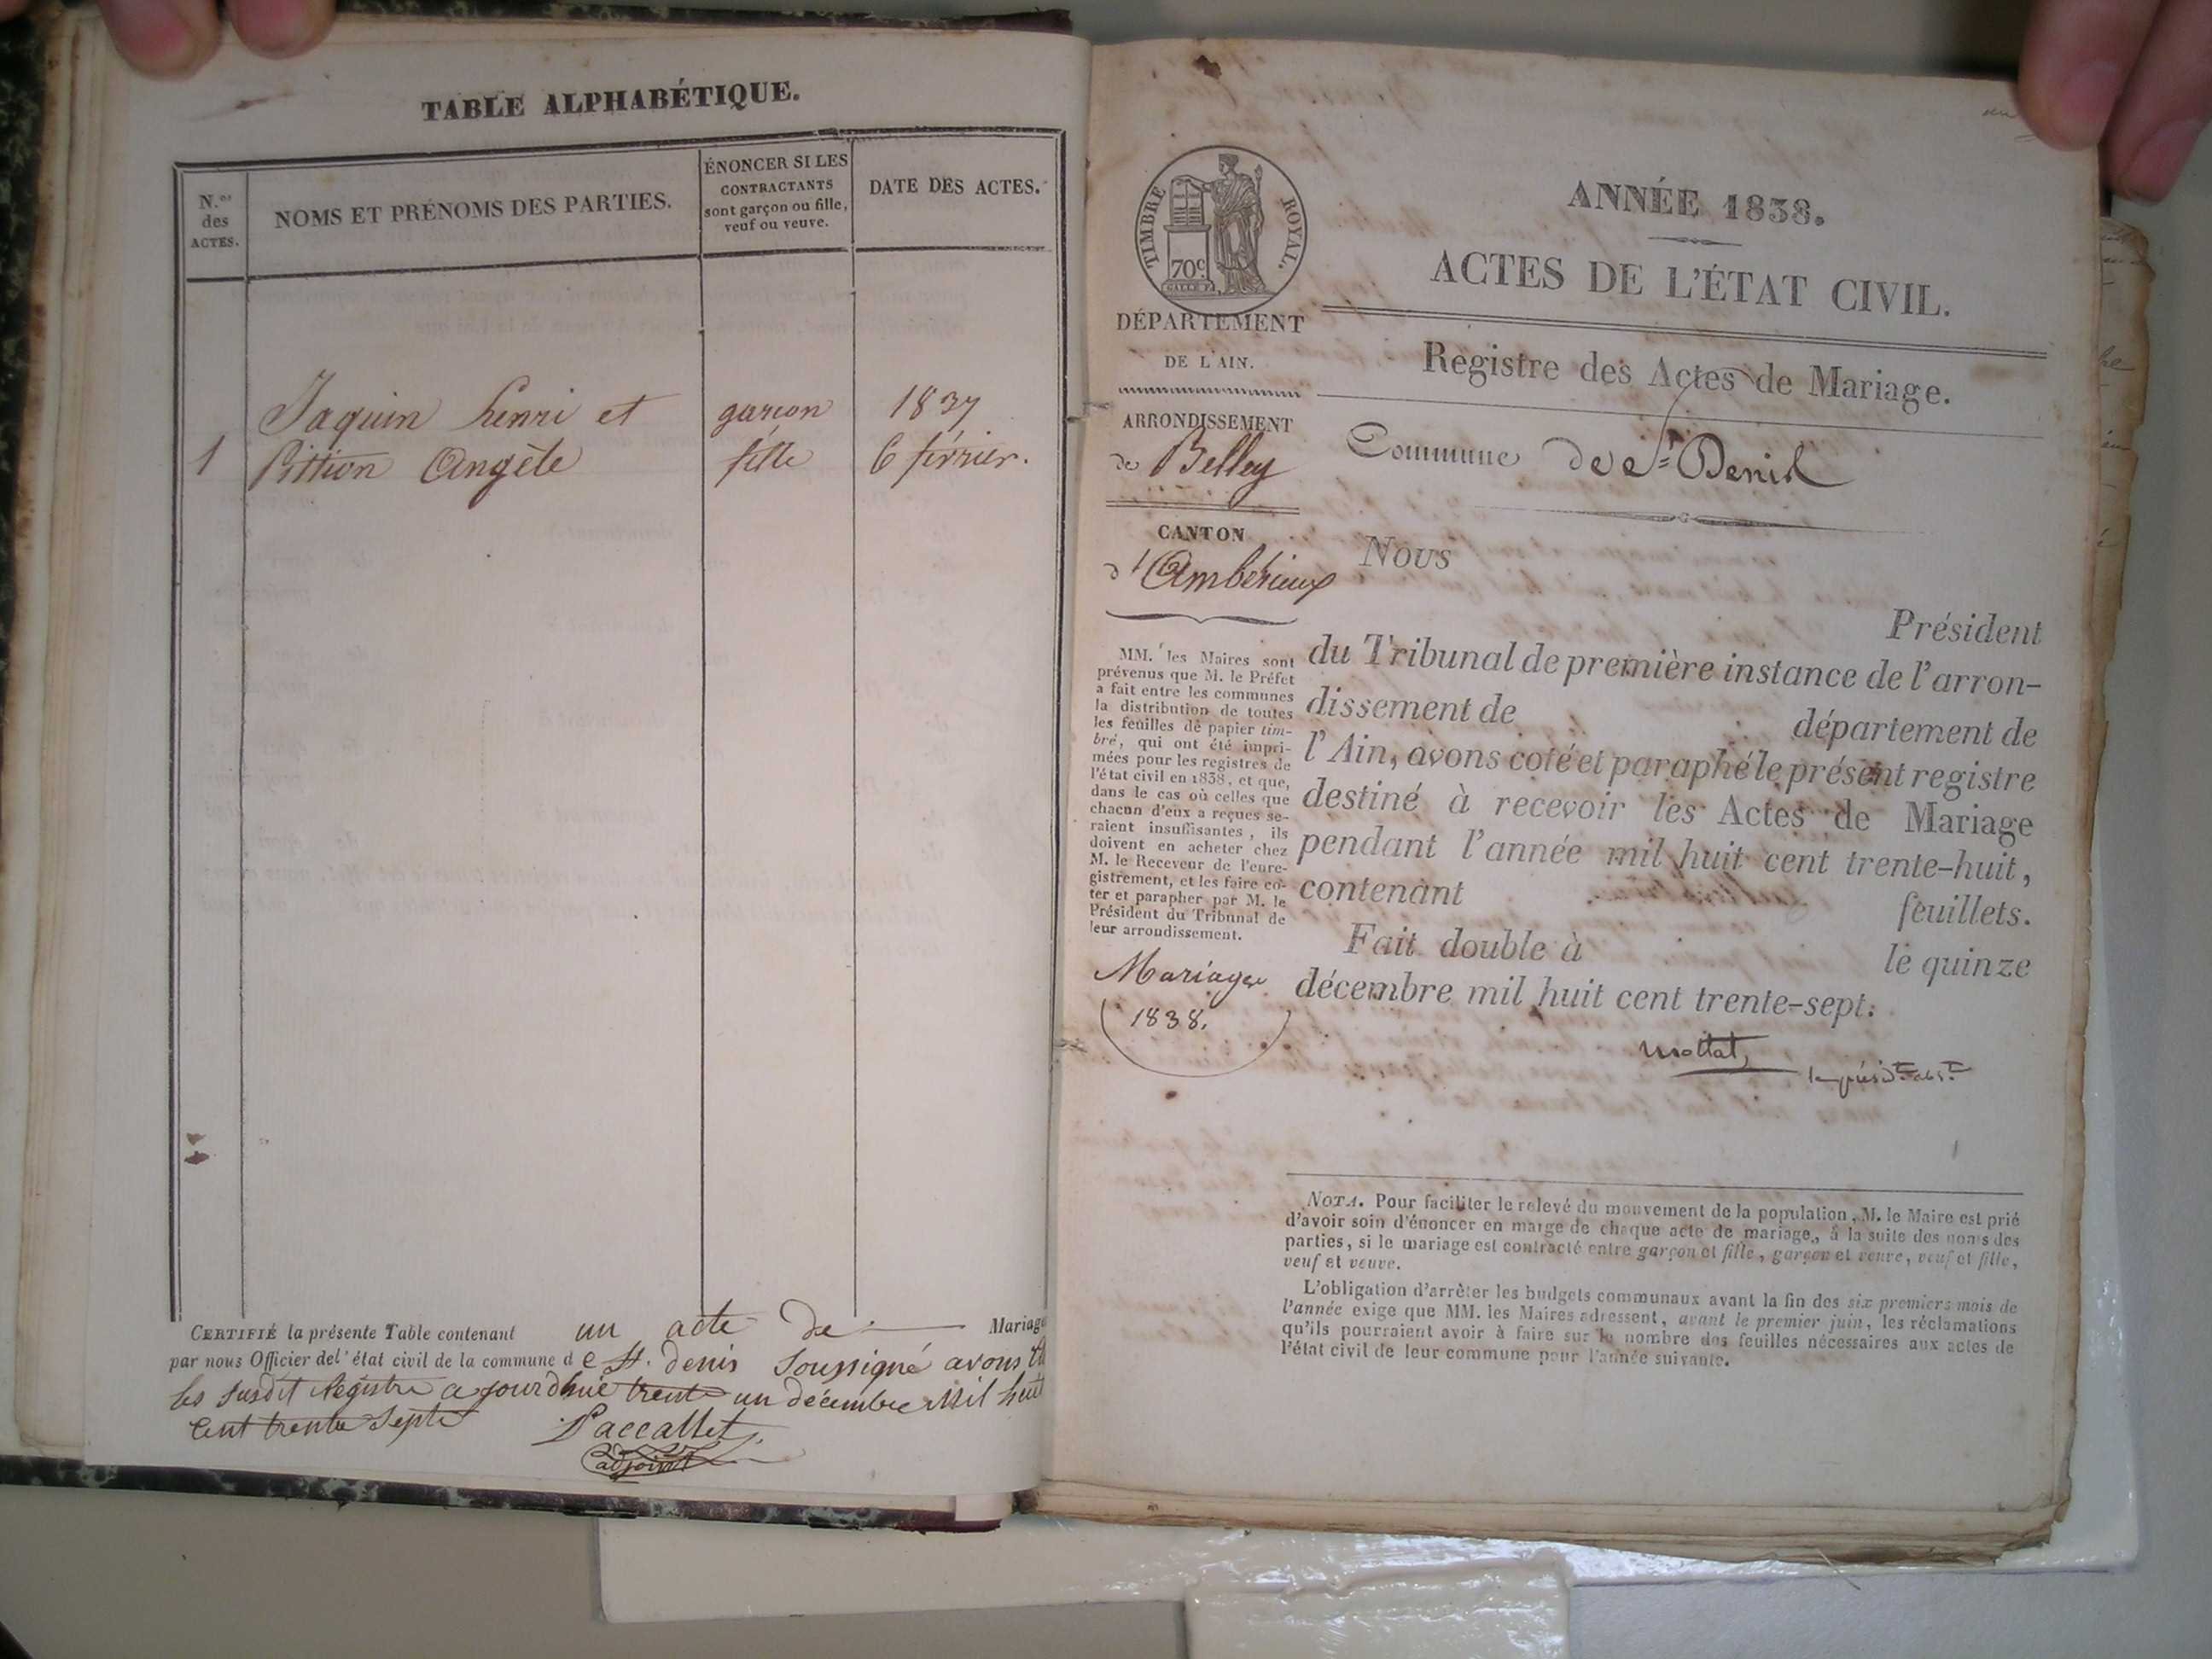 TABLE ALPHABÉTIQUE.
N.os des ACTES.
NOMS ET PRÉNOMS DES PARTIES.
ÉNONCER SI LES
CONTRACTANTS
sont garçon ou fille,
veuf ou veuve.
DATE DES ACTES.
Jaquin henri et garcon 1837
1 Pittion Angèle fille 6 février.
CERTIFIÉ la présente Table contenant un acte de Mariage
par nous Officier del'état civil de la commune de St. denis Soussigné avons
les susdit Registre a jourdhuie trente un décembre Mil huit
Cent trente Septe Paccallet
adjoint
TIMBRE ROYAL.
70c
DÉPARTEMENT
DE L'AIN.
ARRONDISSEMENT
de Belley
CANTON
d'Ambérieux
MM. les Maires sont
prévenus que M. le Préfet
a fait entre les communes
la distribution de toutes
les feuilles de papier tim-
bré, qui ont été impri-
mées pour les registres de
l'état civil en 1838, et que,
dans le cas où celles que
chacun d'eux a reçues se-
raient insuffisantes, ils
doivent en acheter chez
M. le Receveur de l'enre-
gistrement, et les faire co-
ter et parapher par M. le
Président du Tribunal de
leur arrondissement.
Mariage
1838.
ANNÉE 1838.
ACTES DE L'ÉTAT CIVIL.
Registre des Actes de Mariage.
Commune de St Denis
Nous
Président
du Tribunal de première instance de l'arron-
dissement de département de
l'Ain, avons coté et paraphé le présent registre
destiné à recevoir les Actes de Mariage
pendant l'année mil huit cent trente-huit,
contenant feuillets.
Fait double à le quinze
décembre mil huit cent trente-sept.
NOTA. Pour faciliter le relevé du mouvement de la population, M. le Maire est prié
d'avoir soin d'énoncer en marge de chaque acte de mariage, à la suite des noms des
parties, si le mariage est contracté entre garçon et fille, garçon et veuve, veuf et fille,
veuf et veuve.
L'obligation d'arrêter les budgets communaux avant la fin des six premiers mois de
l'année exige que MM. les Maires adressent, avant le premier juin, les réclamations
qu'ils pourraient avoir à faire sur le nombre des feuilles nécessaires aux actes de
l'état civil de leur commune pour l'année suivante.